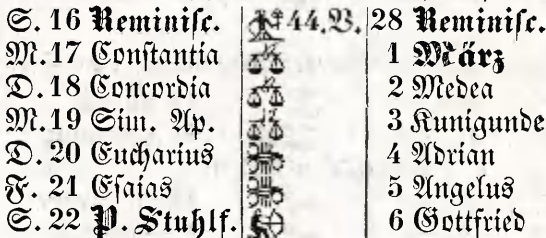 S. 16 Reminiſc. 44.V. 28 Reminiſc.
M. 17 Conſtantia 1 März
D. 18 Concordia 2 Medea
M. 19 Sim. Ap. 3 Kunigunde
D. 20 Eucharius 4 Adrian
F. 21 Eſaias 5 Angelus
S. 22 P. Stuhlf. 6 Gottfried